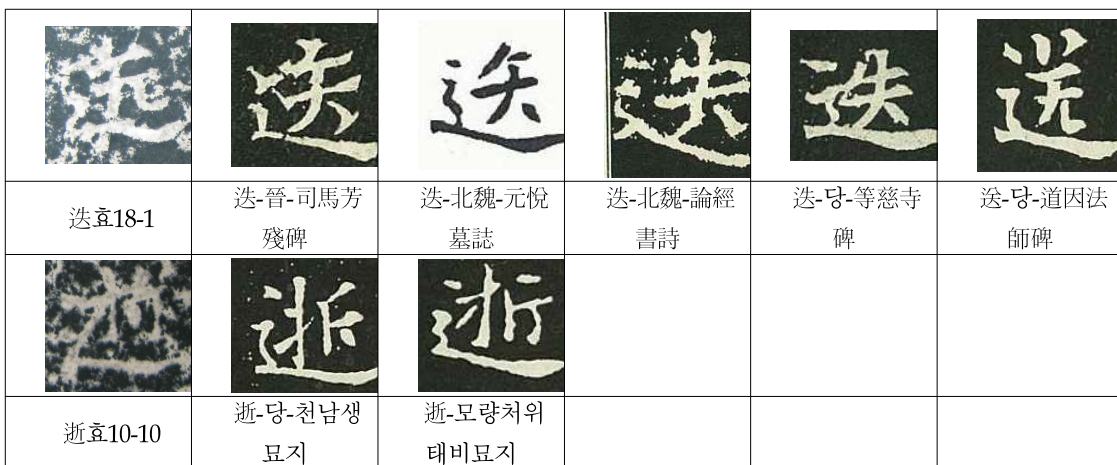 迭
迭
迭
迭
送
迭효18-1
迭-晉-司馬芳
殘碑
迭-北魏-元悅
墓誌
迭-北魏-論經
書詩
迭-당-等慈寺
碑
送-당-道因法
師碑
逝
逝
逝효10-10
逝-당-천남생
묘지
逝-모량처위
태비묘지